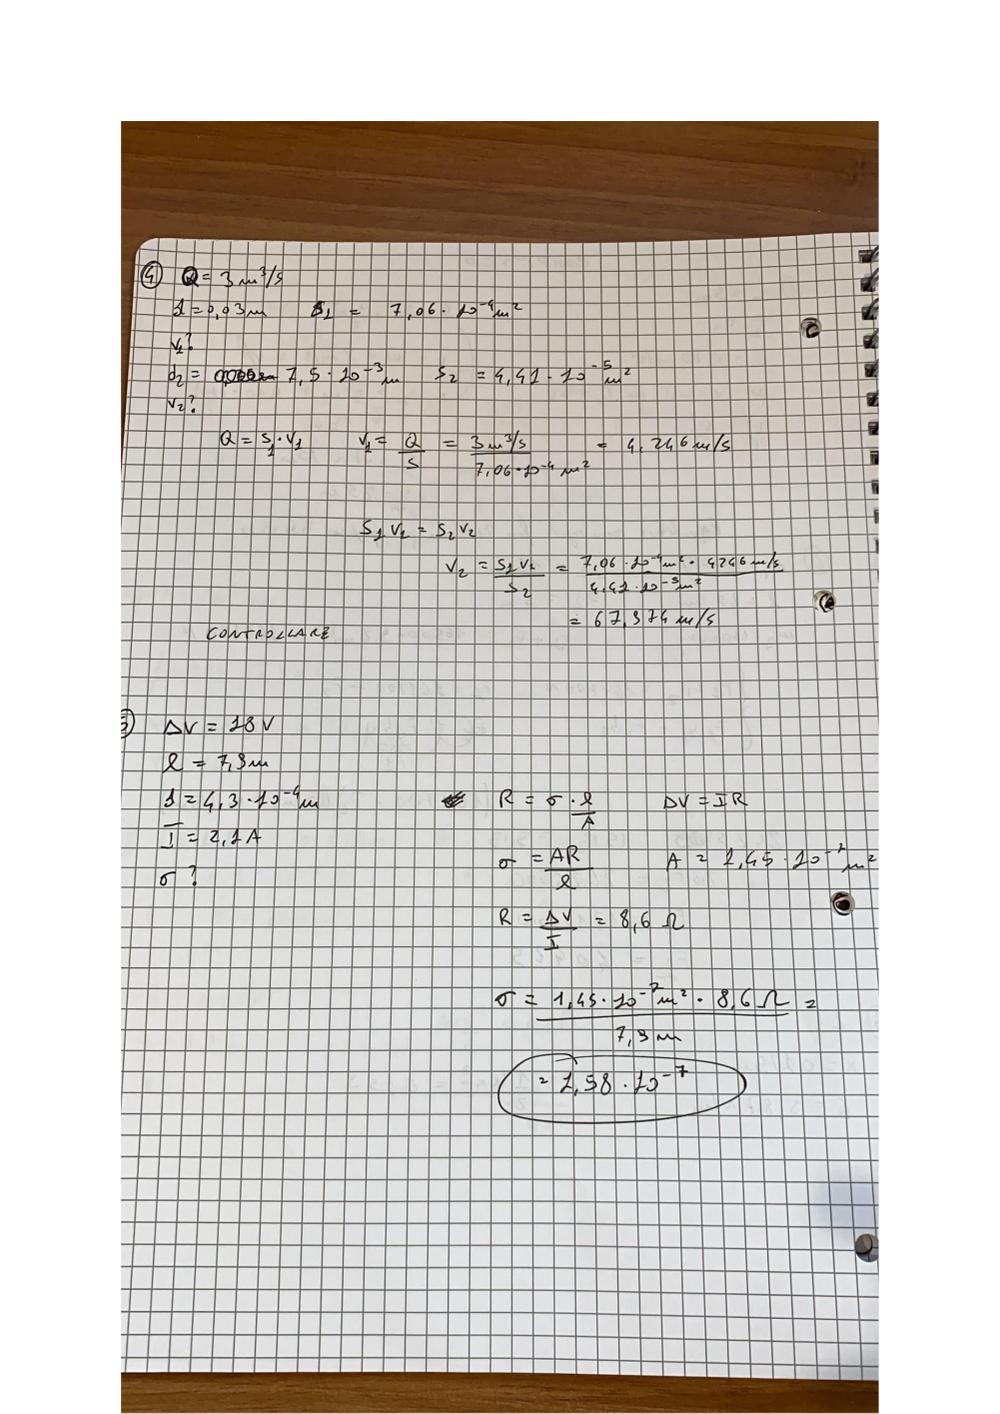 ④ Q = 3 m³/s
d = 0,03 m S₁ = 7,06 · 10⁻⁴ m²
v₁?
d₂ = 7,5 · 10⁻³ m S₂ = 4,41 · 10⁻⁵ m²
v₂?
Q = S₁ · v₁ v₁ = Q/S = 3 m³/s / 7,06 · 10⁻⁴ m² = 4,246 m/s
S₁ v₁ = S₂ v₂
v₂ = S₁ v₁ / S₂ = 7,06 · 10⁻⁴ m² · 4246 m/s / 4,41 · 10⁻⁵ m²
= 67,974 m/s
CONTROLLARE
ΔV = 18 V
l = 7,9 m
d = 4,3 · 10⁻⁴ m R = σ · l/A ΔV = I R
I = 2,1 A
σ? σ = AR/l A = 1,45 · 10⁻⁷ m²
R = ΔV/I = 8,6 Ω
σ = 1,45 · 10⁻⁷ m² · 8,6 Ω / 7,9 m =
= 1,58 · 10⁻⁷